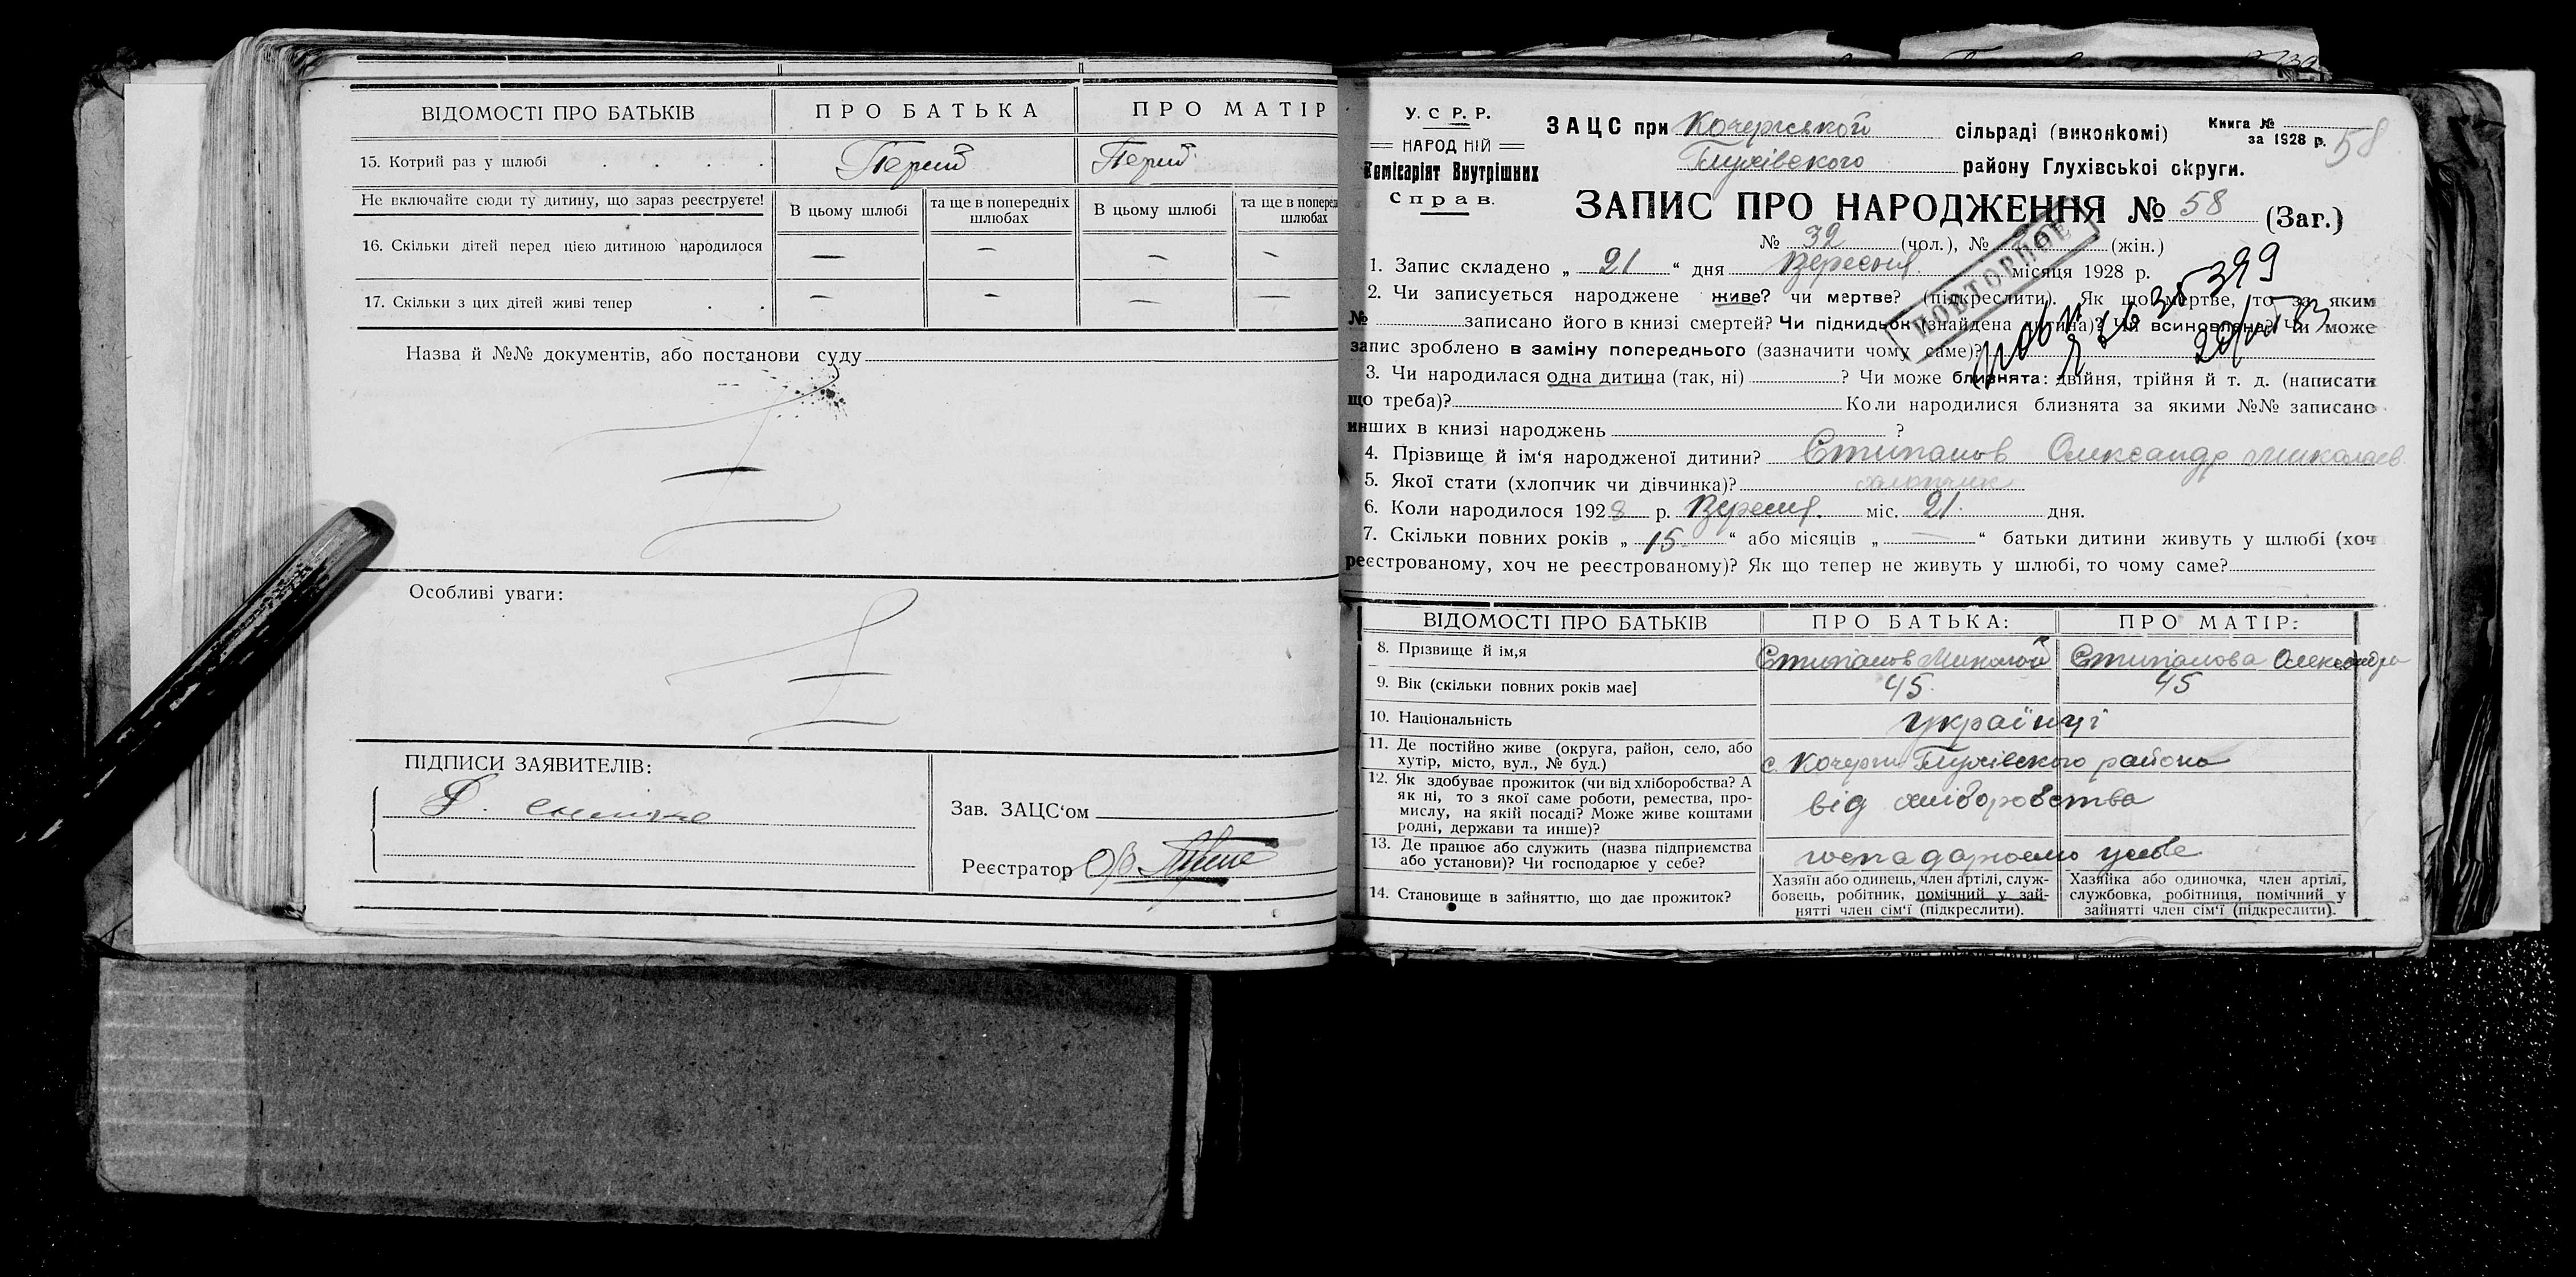 ВІДОМОСТІ ПРО БАТЬКІВ
ПРО БАТЬКА
ПРО МАТІР
15. Котрий раз у шлюбі . . . .
Перший
Перший
Не включайте сюди ту дитину, що зараз реєструєте!
В цьому шлюбі
та ще в попередніх шлюбах
В цьому шлюбі
та ще в поперед
шлюбах
16. Скільки дітей перед цією дитиною народилося
— — — —
17. Скільки з цих дітей живі тепер . .
— — — —
Назва й №№ документів, або постанови суду
Особливі уваги:
ПІДПИСИ ЗАЯВИТЕЛІВ:
Зав. ЗАЦС'ом
Реєстратор
У. С. Р. Р.
НАРОДНІЙ
Комісаріят Внутрішних
Справ.
ЗАЦС при Кочергської сільраді (виконкомі)
Книга №
за 1928 р.
58
Глухівского району Глухівської округи.
ЗАПИС ПРО НАРОДЖЕННЯ № 58 (Заг.)
№ 32 (чол.), № (жін.)
ПОВТОРНОЕ
1. Запис складено „ 21 “ дня Вересня місяця 1928 р.
2. Чи записується народжене живе? чи мертве? (підкреслити). Як що мертве, то за яким
№ записано його в книзі смертей? Чи підкидьок (знайдена дитина)? Чи всиновлена? Чи може
запис зроблено в заміну попереднього (зазначити чому саме)?
3. Чи народилася одна дитина (так, ні) ? Чи може близнята: двійня, трійня й т. д. (написати
що треба)? Коли народилися близнята за якими №№ записано
инших в книзі народжень ?
4. Прізвище й ім'я народженої дитини? Стипанов Олександр Миколаев
5. Якої статі (хлопчик чи дівчинка)? хлопчик
6. Коли народилося 1928 р. Вересня міс. 21 дня.
7. Скільки повних років „ 15 “ або місяців „ — “ батьки дитини живуть у шлюбі (хоч
реєстрованому, хоч не реєстрованому)? Як що тепер не живуть у шлюбі, то чому саме?
ВІДОМОСТІ ПРО БАТЬКІВ
ПРО БАТЬКА:
ПРО МАТІР:
8. Прізвище й ім,я
Стипанов Миколай
Стипанова Олександра
9. Вік (скільки повних років має]
45
45
10. Національність
українці
11. Де постійно живе (округа, район, село, або
хутір, місто, вул., № буд.)
с. Кочерги Глухівского района
12. Як здобуває прожиток (чи від хліборобства? А
як ні, то з якої саме роботи, ремества, про-
мислу, на якій посаді? Може живе коштами
родні, держави та инше)?
від хліборобства
13. Де працює або служить (назва підприємства
або установи)? Чи господарює у себе?
господарюемо усебе
14. Становище в зайняттю, що дає прожиток?
Хазяїн або одинець, член артілі, служ-
бовець, робітник, помічний у зай-
нятті член сім'ї (підкреслити).
Хазяйка або одиночка, член артілі,
службовка, робітниця, помічний у
зайнятті член сім'ї (підкреслити).